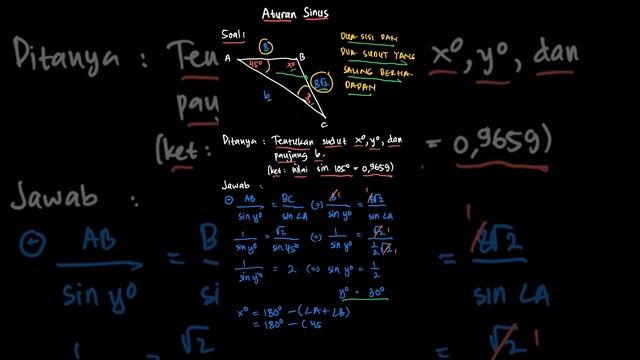 Aturan Sinus
Soal:
8
A
45°
x°
B
8√2
b
y°
C
DUA SISI DAN
DUA SUDUT YANG
SALING BERHA-
DAPAN
Ditanya : Tentukan sudut x°, y°, dan
panjang b.
(ket: nilai sin 105° = 0,9659)
Jawab :
AB/sin y° = BC/sin ∠A (=) 8 1/sin y° = 1 8√2/sin ∠A
1/sin y° = √2/sin 45° (=) 1/sin y° = √2 1/½√2 1
1/sin y° = 2 (=) sin y° = 1/2
y° = 30°
x° = 180° - (∠A + ∠B)
= 180° - (45
Ditanya : Tentu
x°, y°, dan
panj
(ket:
= 0,9659)
Jawab :
AB/sin y° = B
1 8√2/sin ∠A
1
√2
√2 1